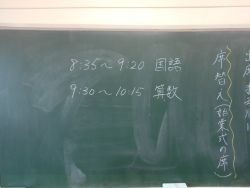 8:35～9:20 国語
9:30～10:15 算数
席替え(授業式の席)